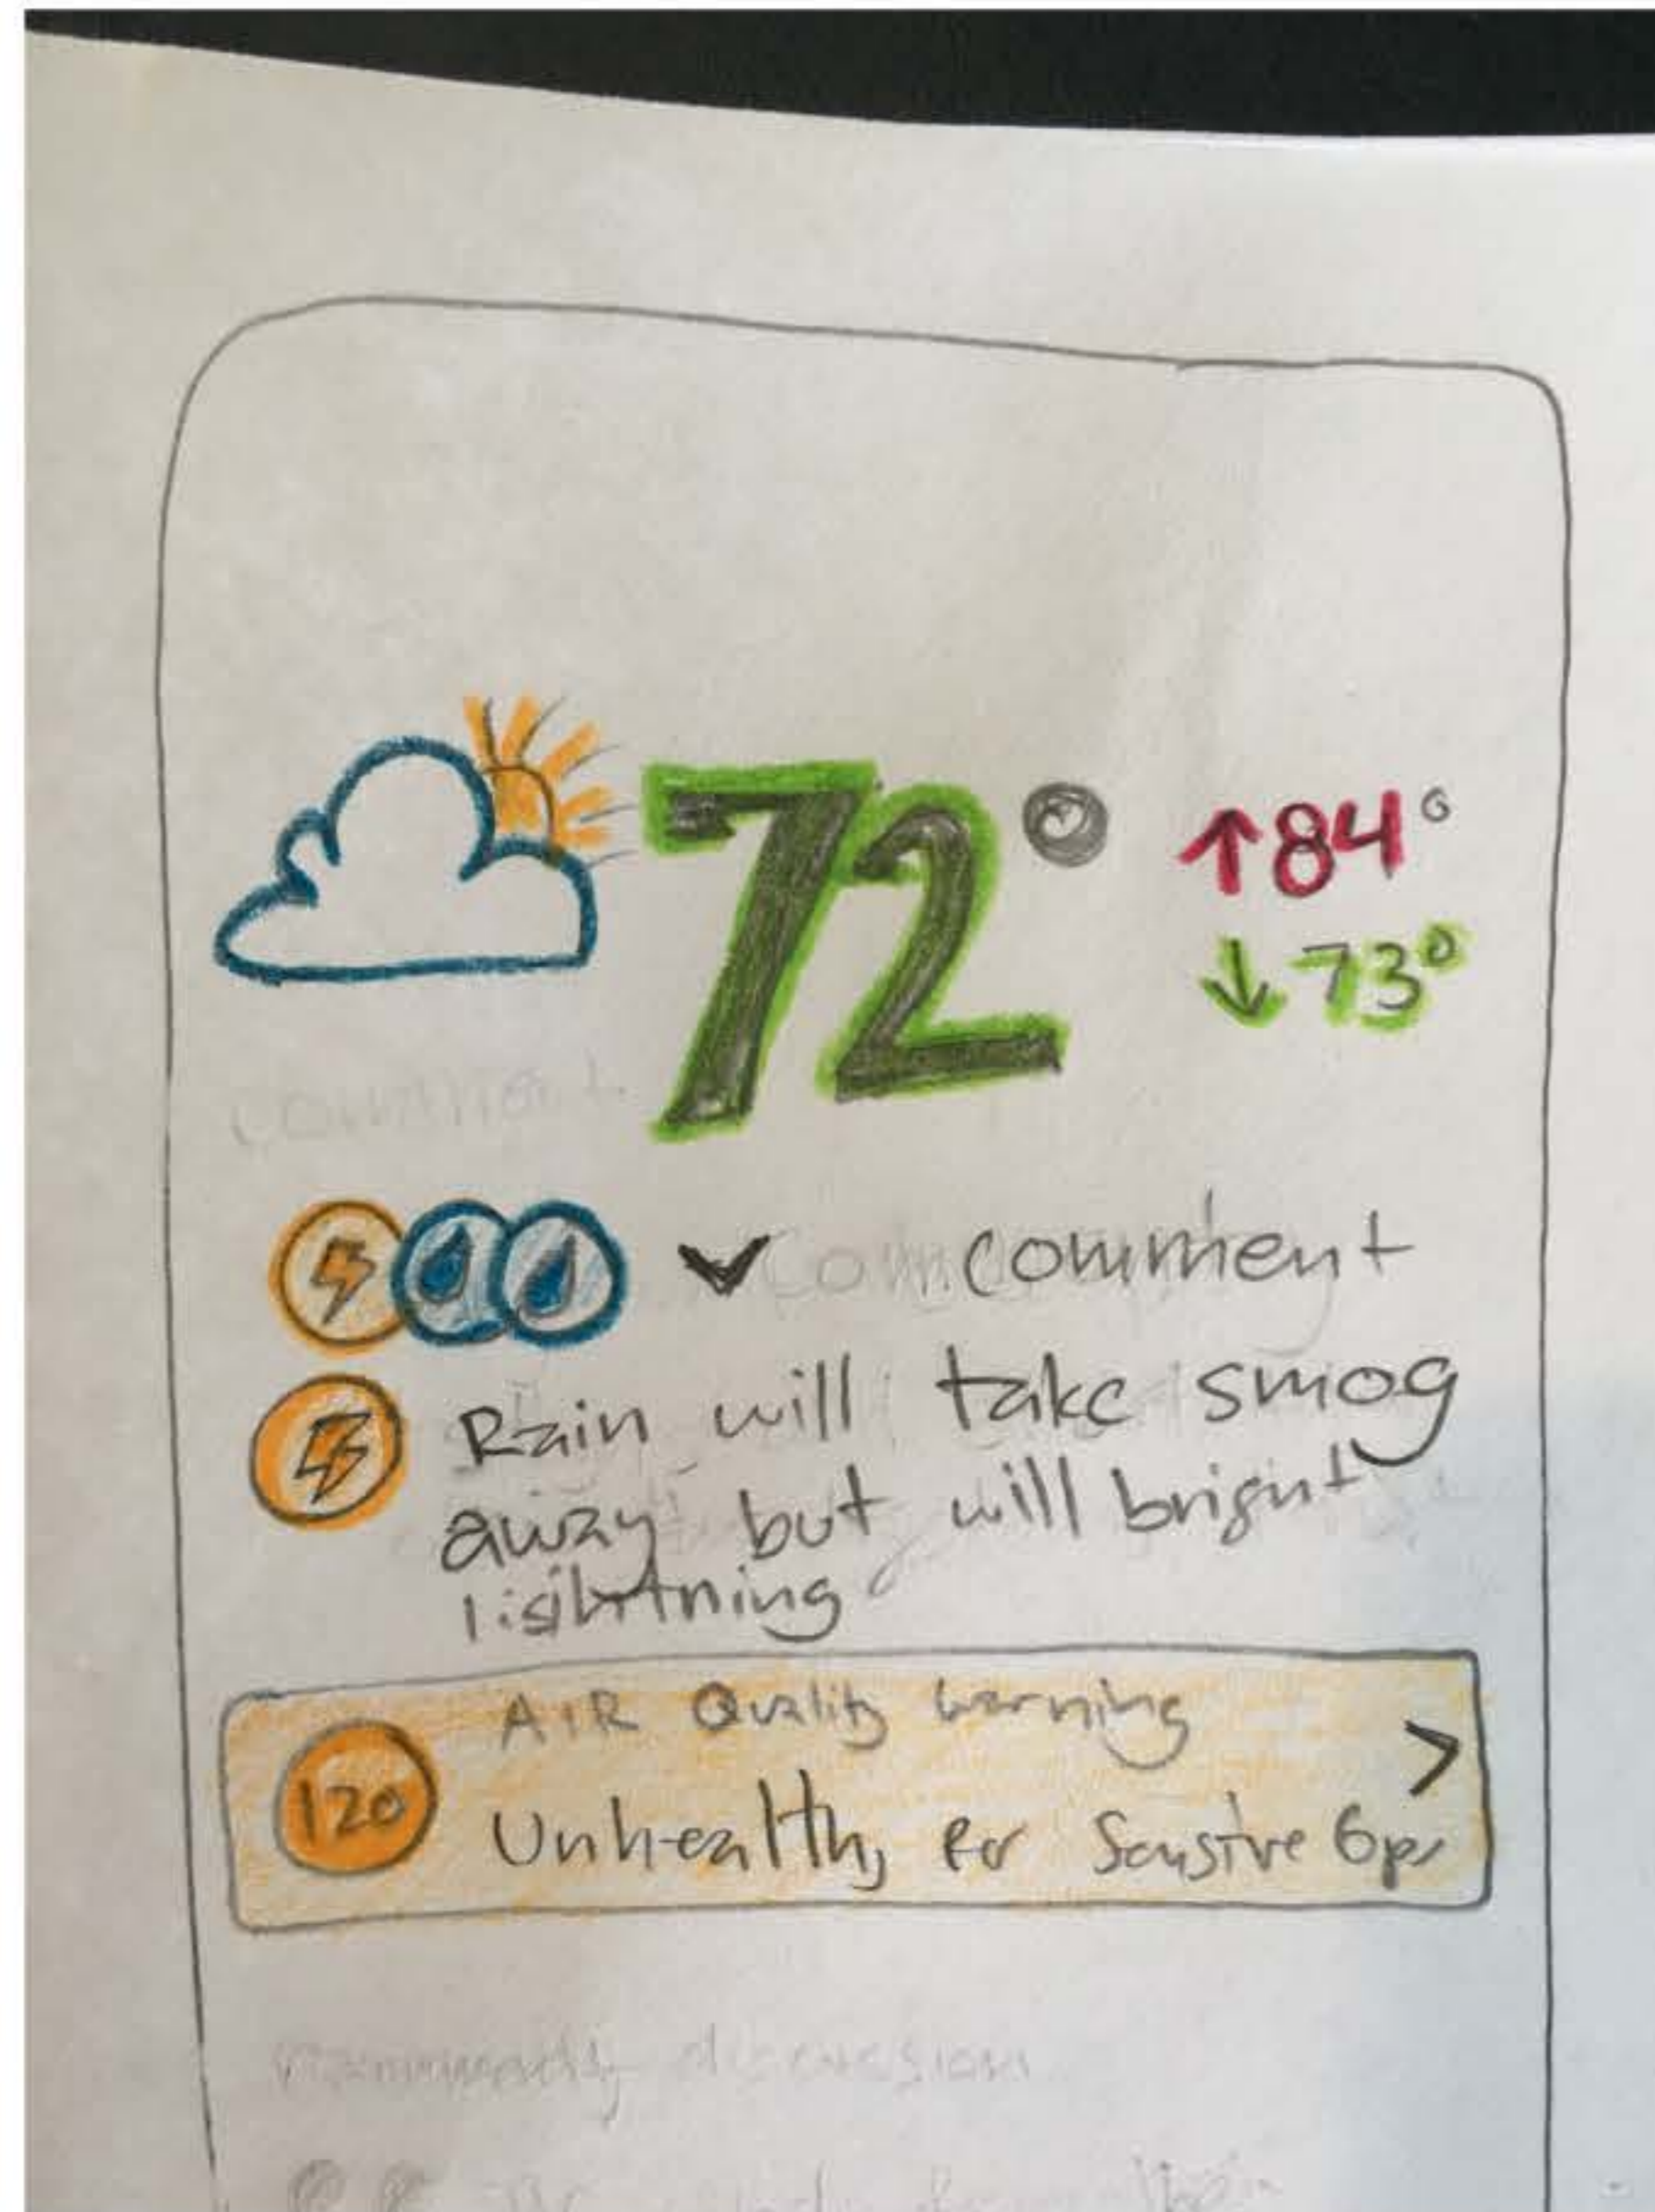 72°
↑84°
↓73°
comment
comment
Rain will take smog
away but will bright
lightning
AIR Quality Warning
120
Unhealthy for Senstive Gps
discussion